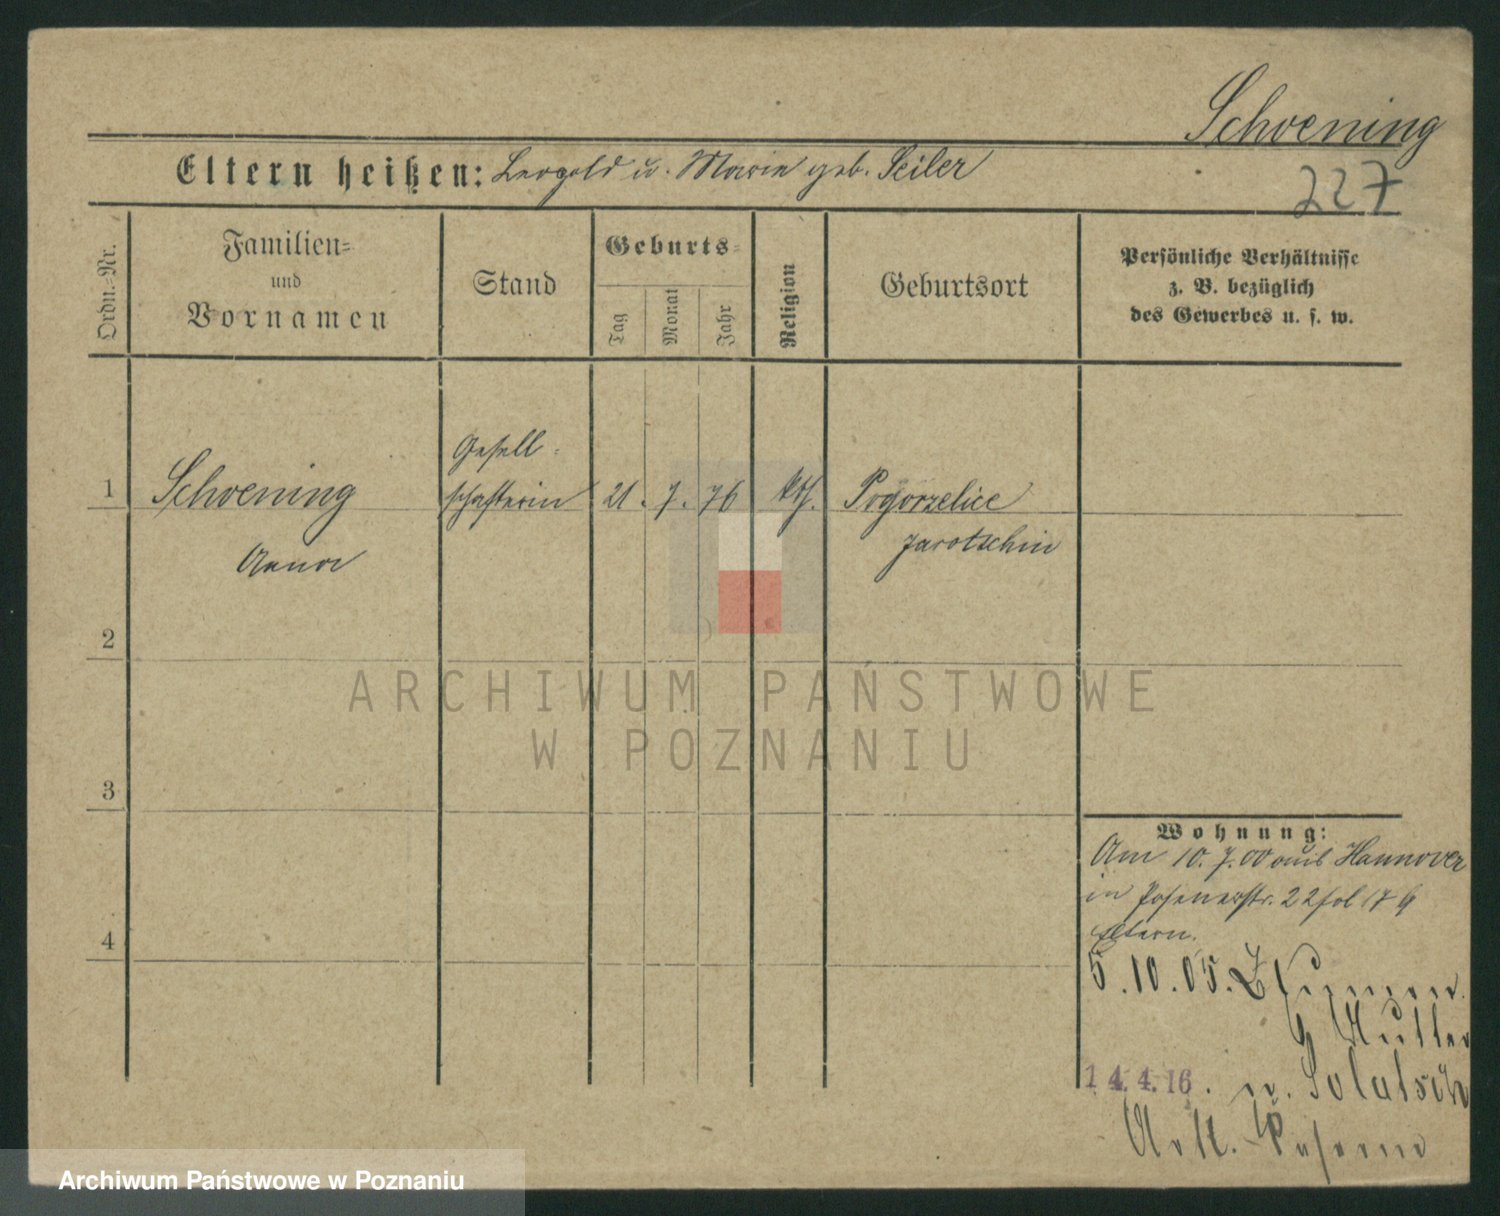 Schoening
Eltern heißen: Leopold u. Marie geb. Seiler
227
Ordn.-Nr.
Familien-
und
Vornamen
Stand
Geburts-
Tag
Monat
Jahr
Religion
Geburtsort
Persönliche Verhältnisse
z. B. bezüglich
des Gewerbes u. s. w.
Gesell-
1 Schoening schafterin 21. 7. 76 kth. Pogorzelice
Jarotschin
Anna
2
ARCHIWUM PAŃSTWOWE
W POZNANIU
3
Wohnung:
Am 10.7.00 aus Hannover
in Posenerstr. 22
Eltern.
4
5.10.05.
Mutter
14.4.16. n. Solatsch
Art. Kaserne
Archiwum Państwowe w Poznaniu